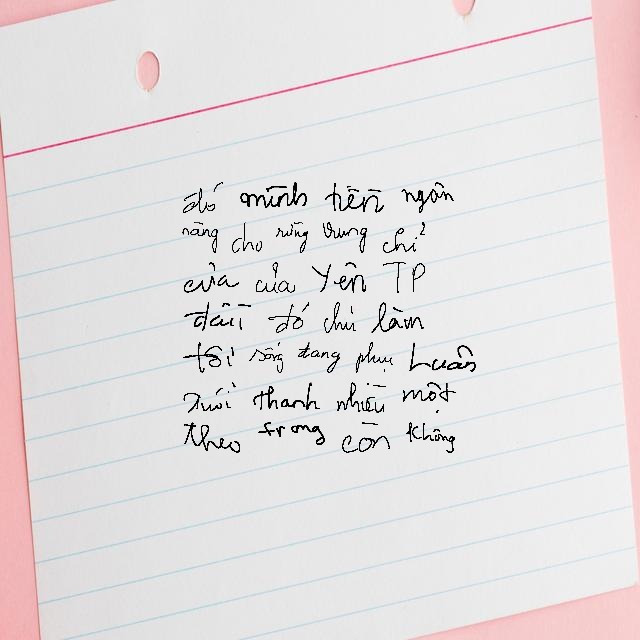 đó mình tiền ngân
nâng cho rừng trung chỉ
cửa của Yên TP
đầu đó chủ làm
tôi sống đang phụ Luân
dưới thanh nhiều một
theo trong còn không